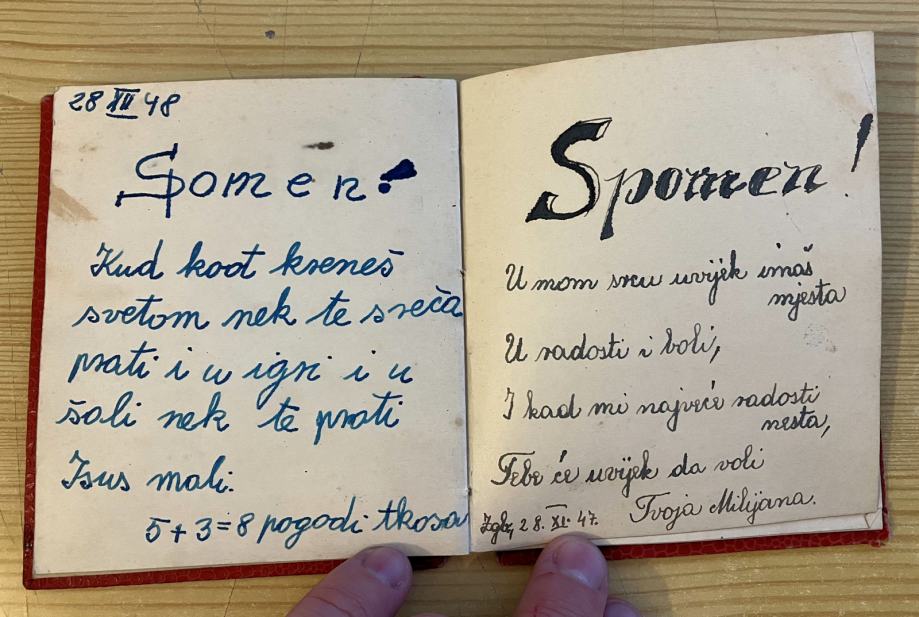 28 XII 48
Spomen!
Kud koot kreneš
svetom nek te sreča
prati i u igri i u
šali nek te prati
Isus mali.
5+3=8 pogodi tkosa
Spomen!
U mom srcu uvijek imaš
mjesta
U radosti i boli,
I kad mi najveće radosti
nesta,
Tebe će uvijek da voli
Tvoja Milijana.
Zgb, 28. XI. 47.